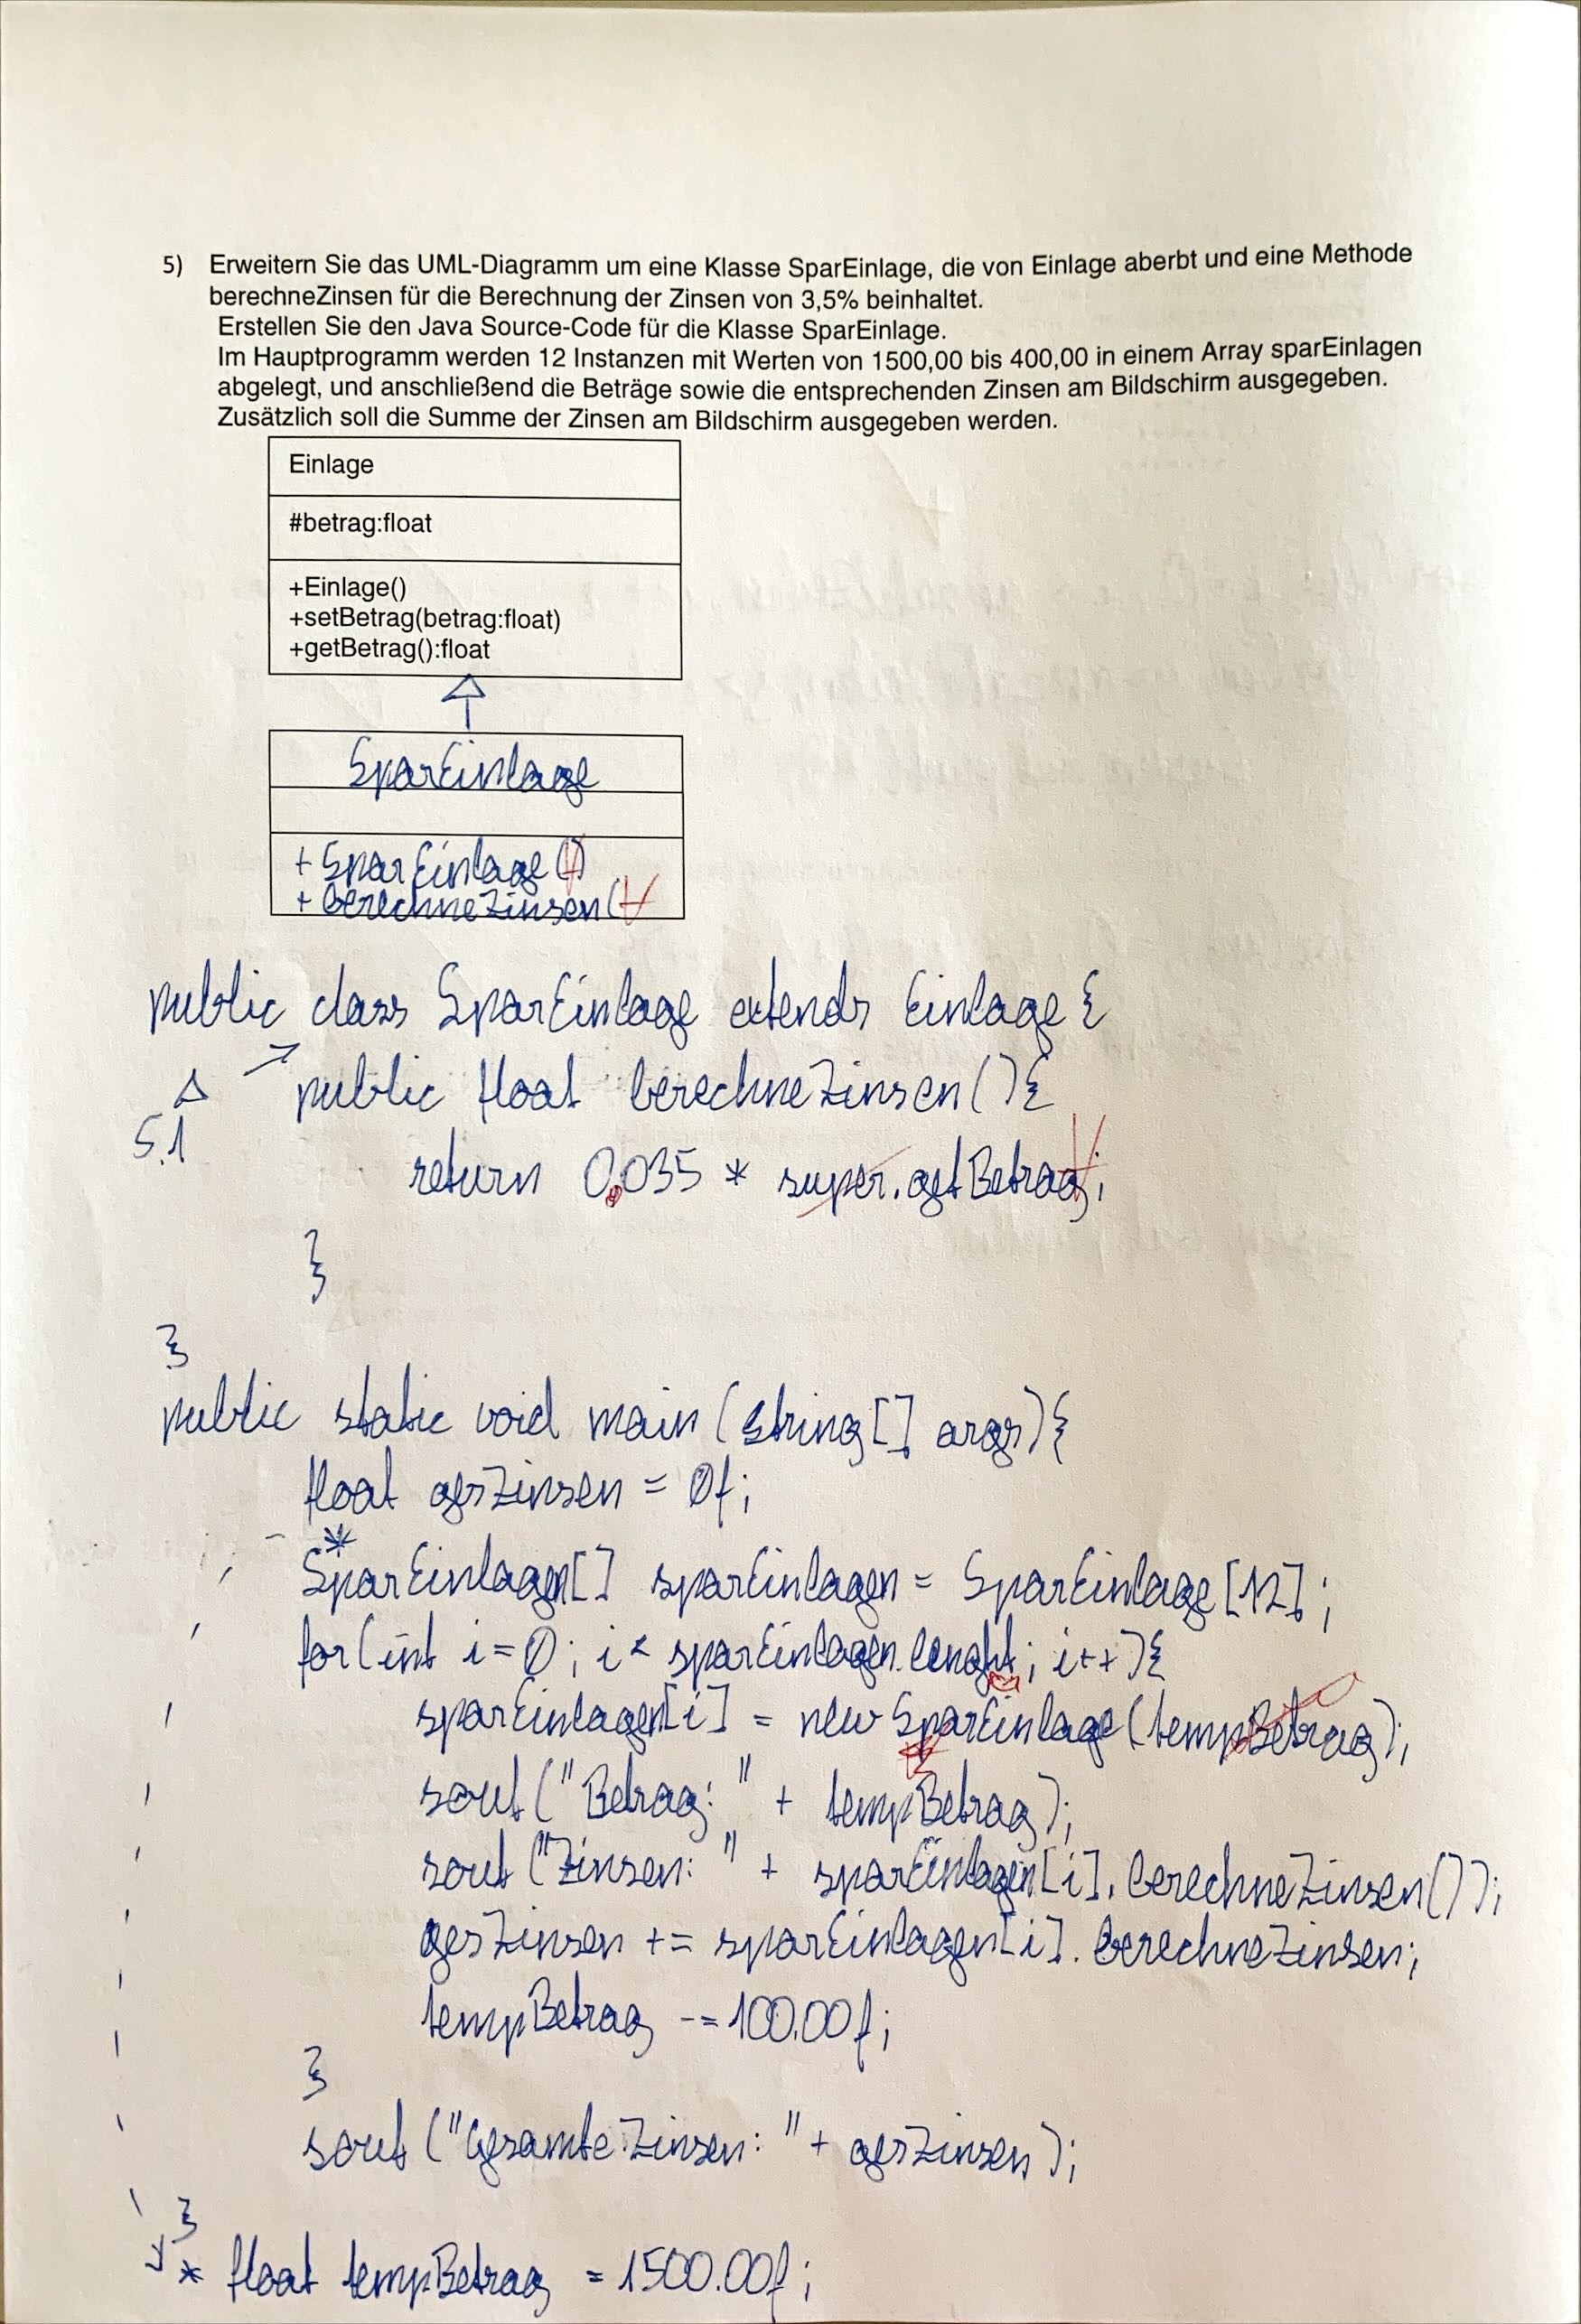 5) Erweitern Sie das UML-Diagramm um eine Klasse SparEinlage, die von Einlage aberbt und eine Methode
berechneZinsen für die Berechnung der Zinsen von 3,5% beinhaltet.
Erstellen Sie den Java Source-Code für die Klasse SparEinlage.
Im Hauptprogramm werden 12 Instanzen mit Werten von 1500,00 bis 400,00 in einem Array sparEinlagen
abgelegt, und anschließend die Beträge sowie die entsprechenden Zinsen am Bildschirm ausgegeben.
Zusätzlich soll die Summe der Zinsen am Bildschirm ausgegeben werden.
Einlage
#betrag:float
+Einlage()
+setBetrag(betrag:float)
+getBetrag():float
SparEinlage
+ SparEinlage()
+ berechneZinsen(
public class SparEinlage extends Einlage {
public float berechneZinsen(){
5.1
return 0.035 * super.getBetrag;
}
}
public static void main (String[] args){
float gesZinsen = 0f;
*
SparEinlagen[] sparEinlagen = SparEinlage[12];
for(int i=0; i< sparEinlagen.lenght; i++){
sparEinlagen[i] = new SparEinlage(tempBetrag);
sout("Betrag: " + tempBetrag);
sout("Zinsen: " + sparEinlagen[i].berechneZinsen());
gesZinsen += sparEinlagen[i].berechneZinsen;
tempBetrag -= 100.00f;
}
sout("Gesamte Zinsen: " + gesZinsen);
}
* float tempBetrag = 1500.00f;